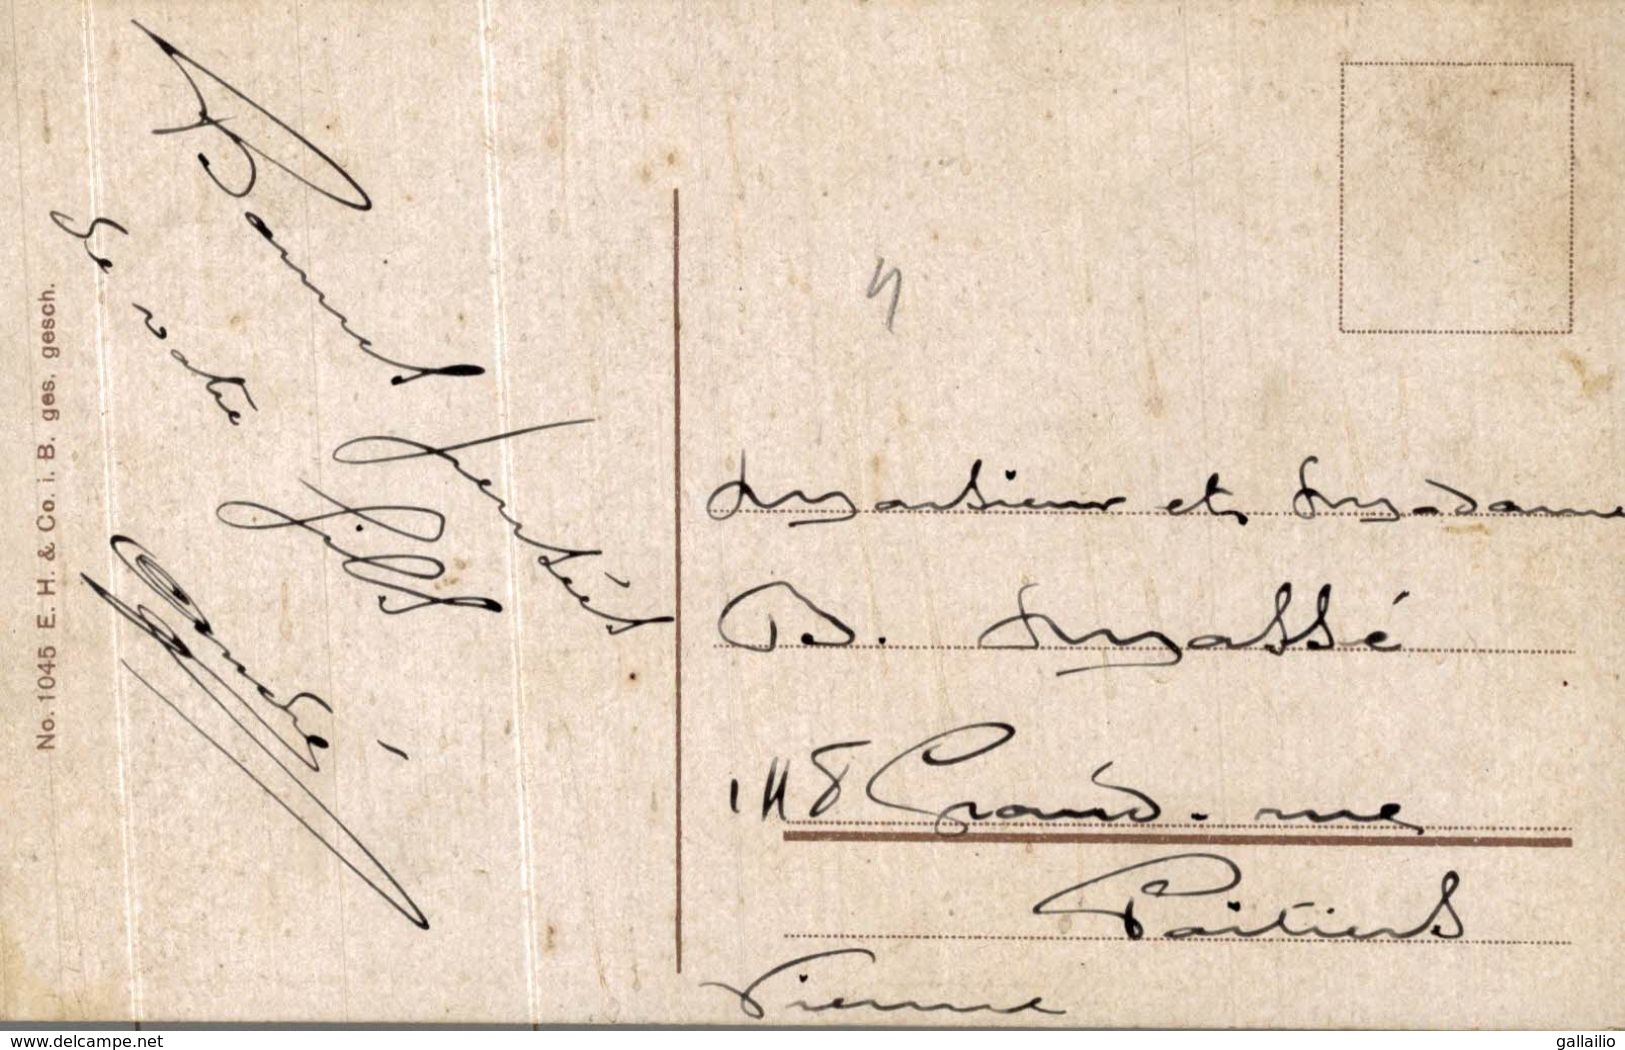 No. 1045 E. H. & Co. i. B. ges. gesch.
Bonnes pensées
de votre fille
Andrée
Monsieur et Madame
B. Massé
118 Grand-rue
Poitiers
Vienne
www.delcampe.net
gallailio